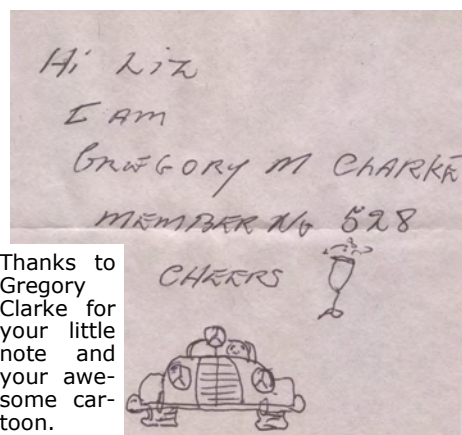 Hi Liz
I AM
GREGORY M CLARKE
MEMBER No 528
CHEERS
Thanks to
Gregory
Clarke for
your little
note and
your awe-
some car-
toon.